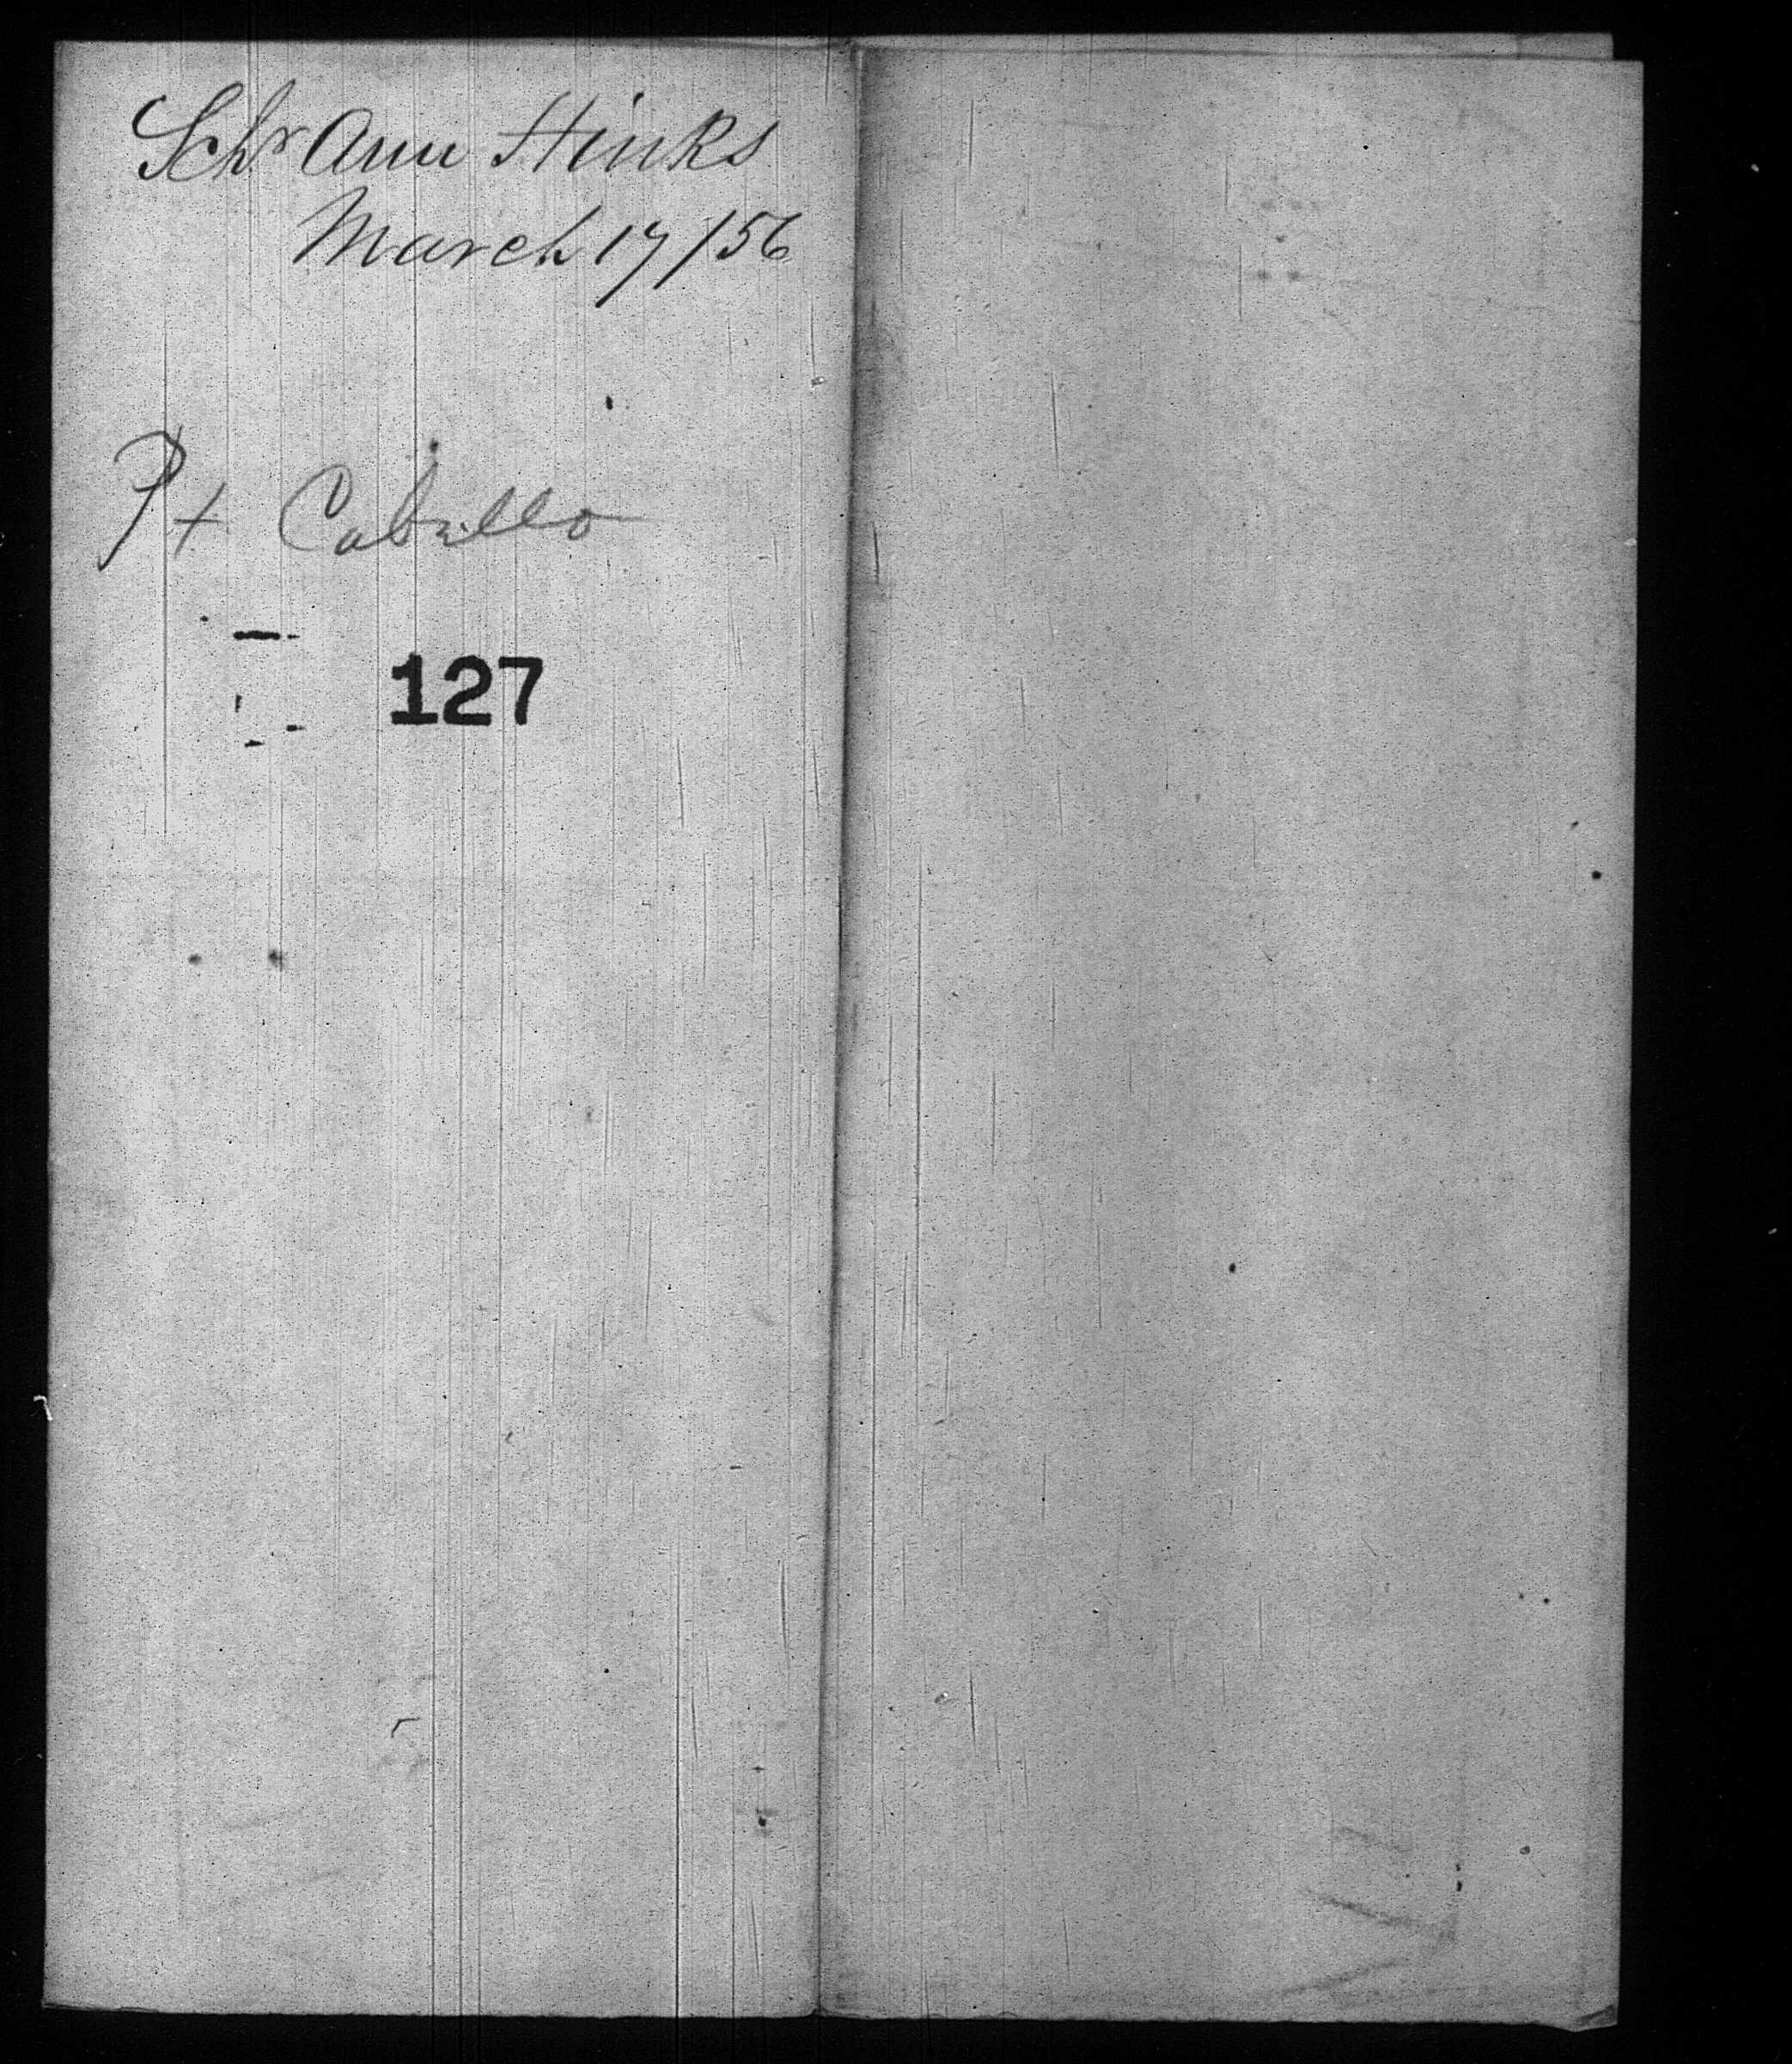 Schr Ann Hinks
March 17/56
Pt Cabello
127